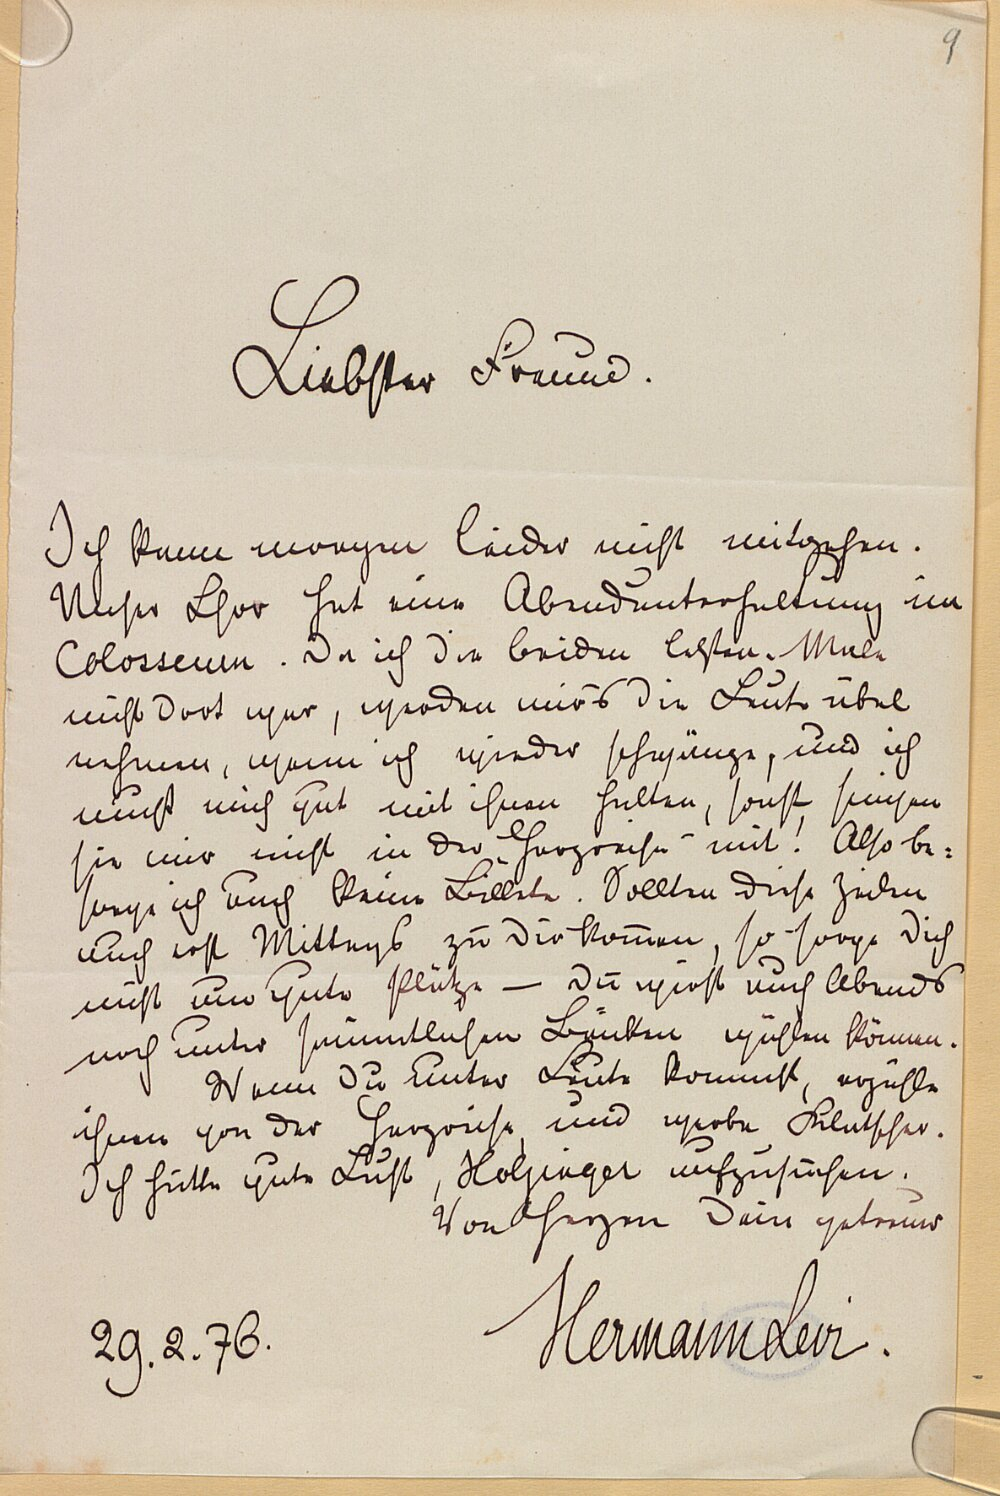 9
Liebster Freund.
Ich kann morgen leider nicht mitgehen.
Unser Chor hat eine Abendunterhaltung im
Colosseum. Da ich die beiden letzten Male
nicht dort war, werden mir's die Leute übel
nehmen, wenn ich wieder schwänze, und ich
muß mich gut mit ihnen halten, sonst singen
sie mir nicht in der "Harzreise" mit! Also be=
sorge ich auch keine Billete. Sollten diese Zeilen
auch erst Mittags zu Dir kommen, so sorge Dich
nicht um gute Plätze — Du wirst auch Abends
noch unter sämmtlichen Bänken wählen können.
Wenn Du unter Leute kommst, erzähle
ihnen von der Harzreise, und werbe Klatscher.
Ich hätte gute Lust, aufzusuchen.
Von Herzen Dein getreuer
29.2.76.
Hermann Levi.